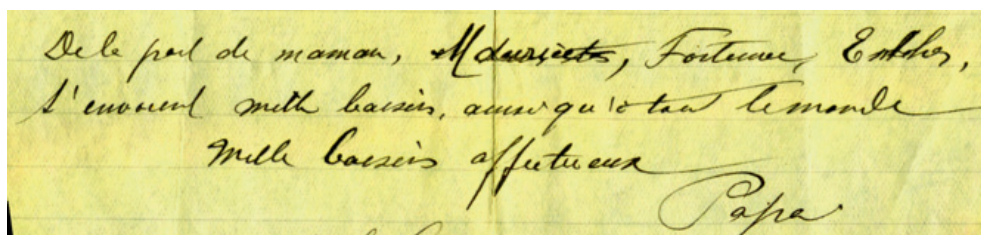 De la part de maman, Fortunee, Esther,
t'envoient mille baisers, ainsi qu'à tout le monde
Mille baisers affectueux
Papa